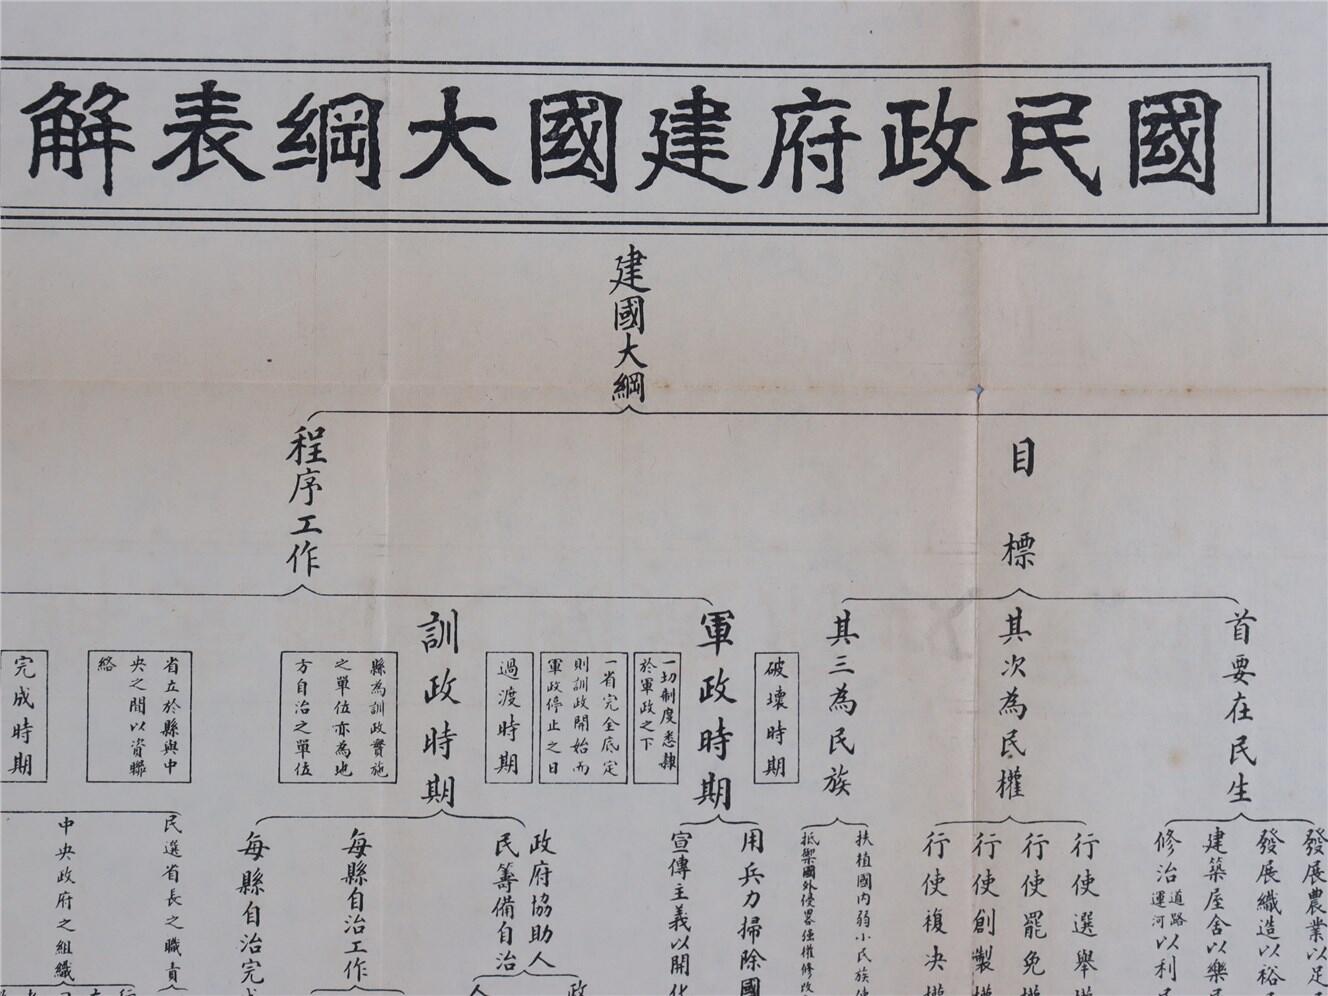 國民政府建國大綱表解
建國大綱
目標
首要在民生
發展農業以足
發展織造以裕
建築屋舍以樂
修治道路運河以利
其次為民權
行使選舉權
行使罷免權
行使創製權
行使複決權
其三為民族
扶植國內弱小民族
抵禦國外侵畧強權修改
程序工作
破壞時期
軍政時期
一切制度悉隸
於軍政之下
用兵力掃除國
宣傳主義以開化
一省完全底定
則訓政開始而
軍政停止之日
過渡時期
訓政時期
縣為訓政實施
之單位亦為地
方自治之單位
政府協助人
民籌備自治
每縣自治工作
每縣自治完成
省立於縣與中
央之間以資聯
絡
民選省長之職責
中央政府之組織
完成時期